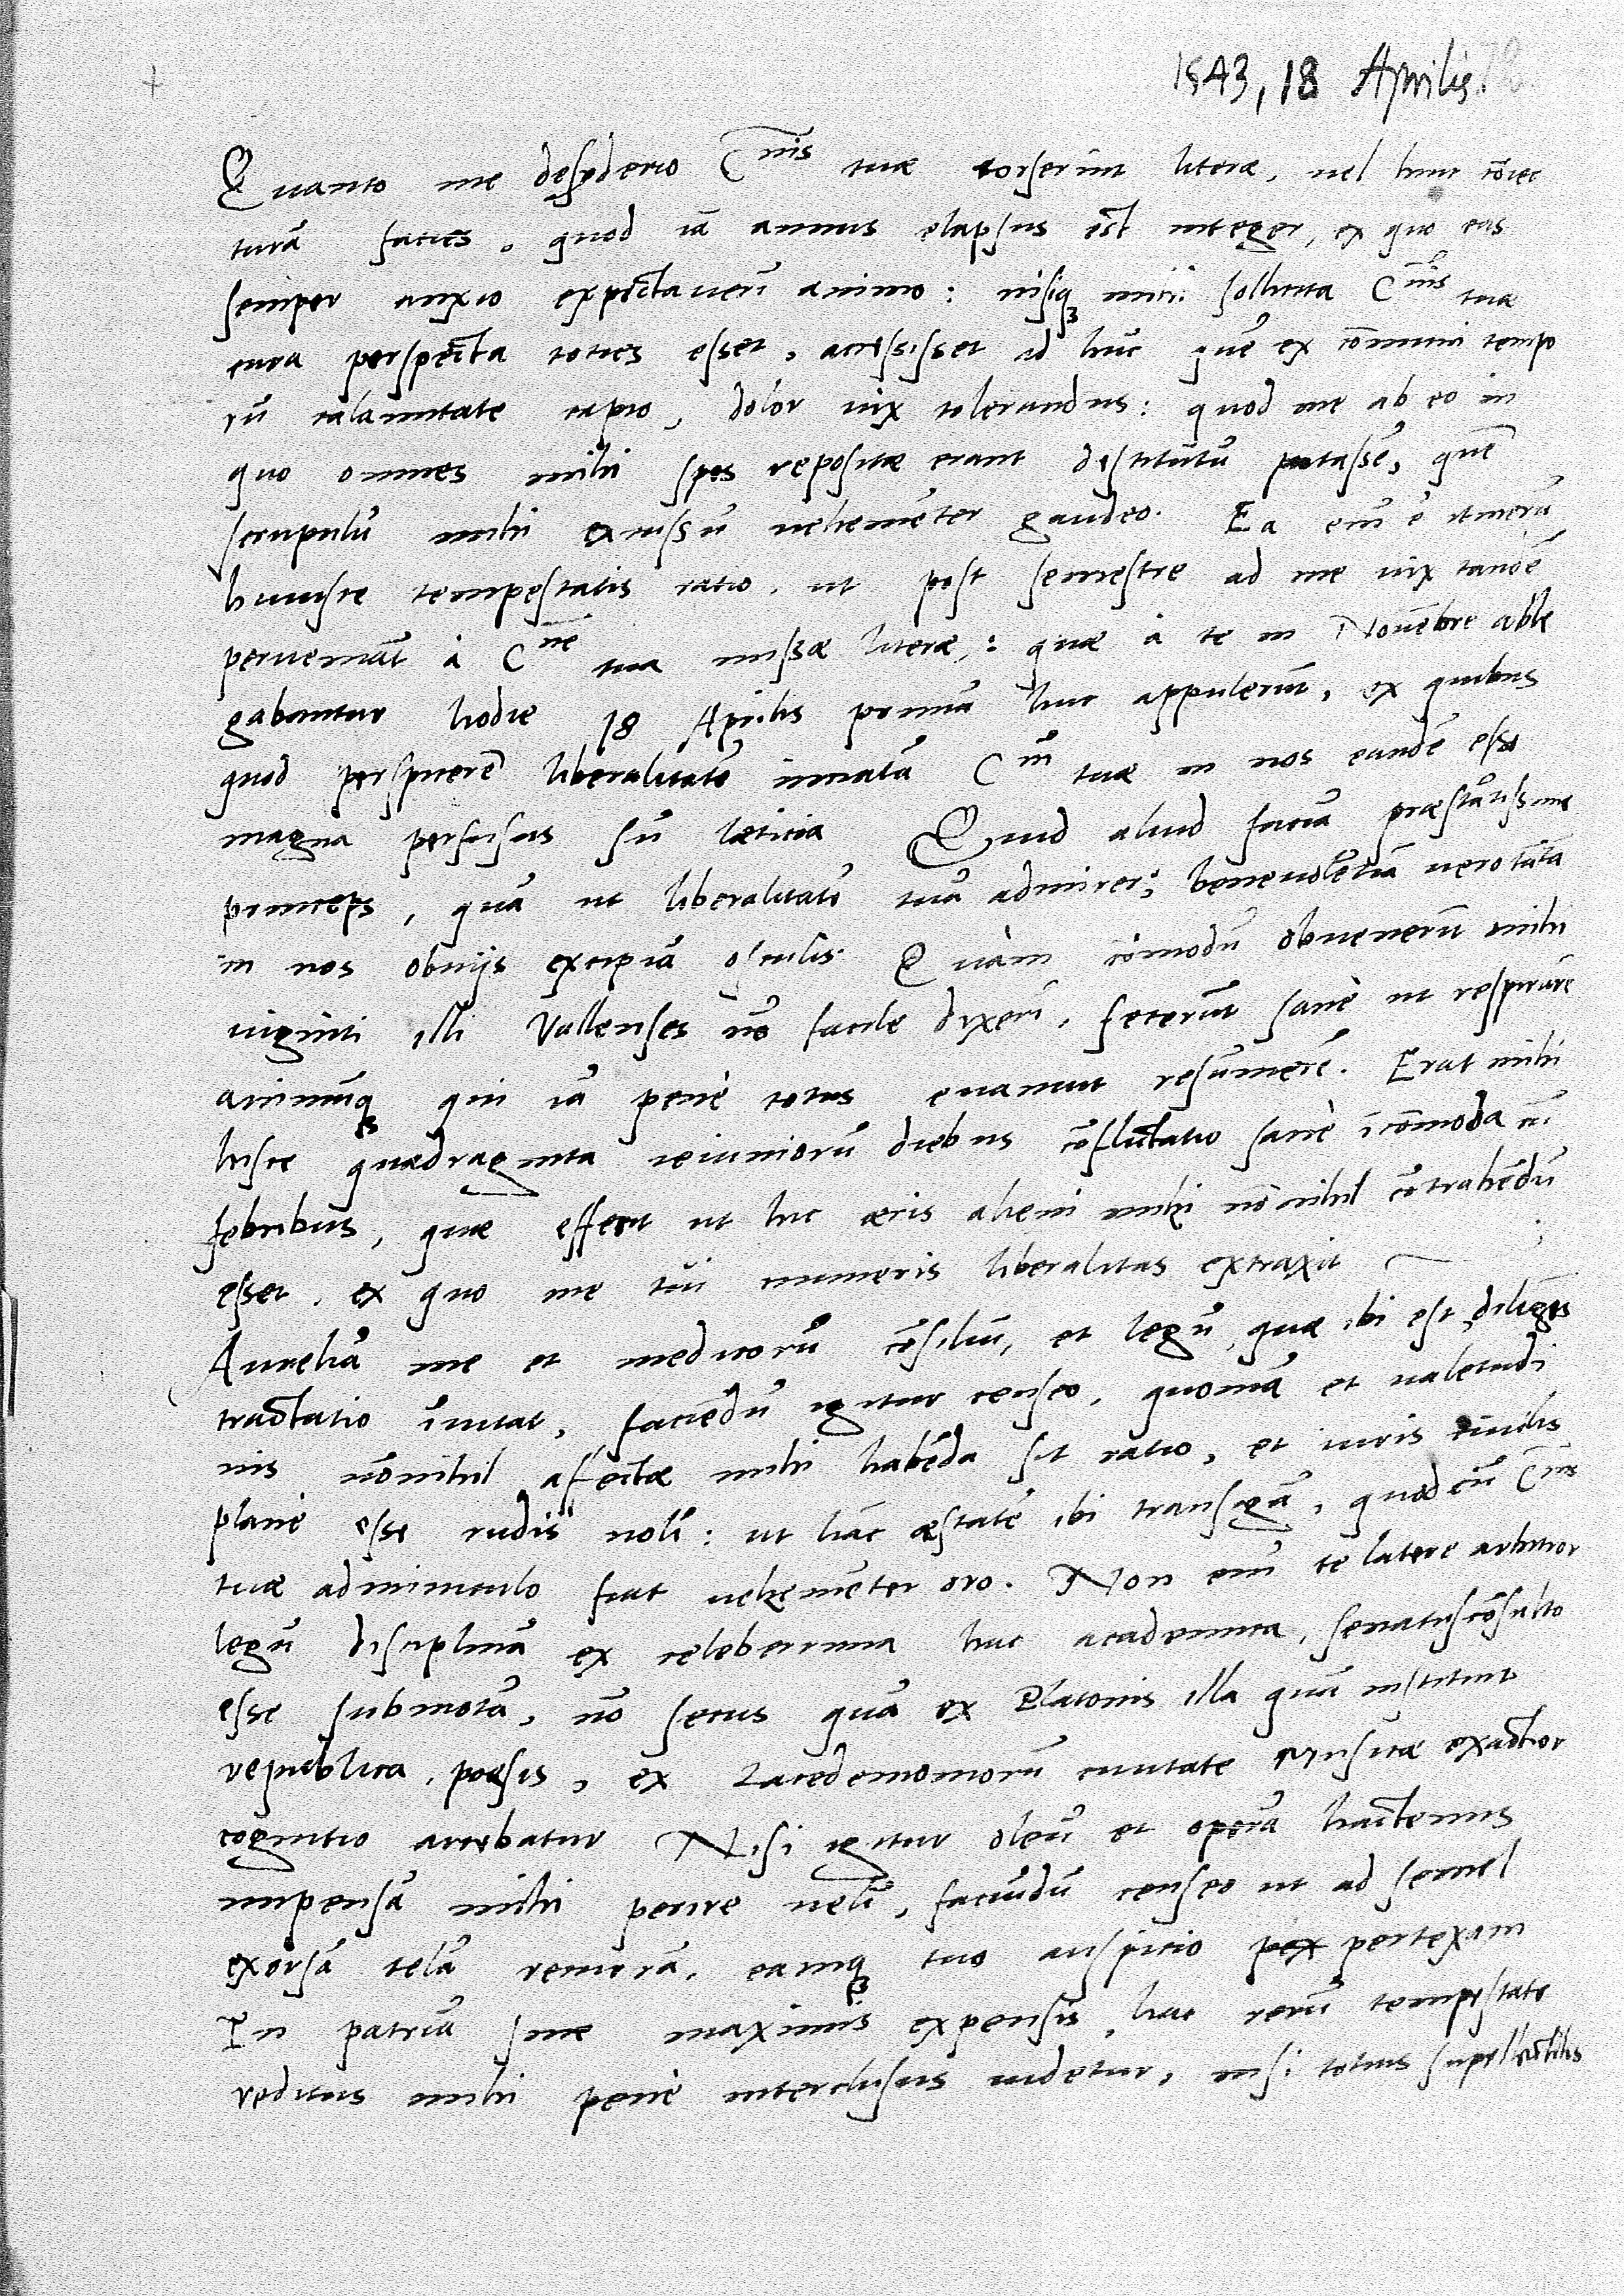 1543, 18 Aprilis
Quanto me desyderio C^nis tuae torserint literae, vel hinc co̅iec
tura̅ facies, quod ia̅ annus elapsus est integer, ex quo eas
semper anxio expectaueri̅ animo: nisiq₃ mihi sollicita C^nis tua
cura perspecta toties esset, accessisset ad hu̅c que̅ ex co̅muni tempo
ru̅ calamitate capio, dolor vix tolerandus: quod me ab eo in
quo omnes mihi spes repositae erant destitutu̅ putasse̅, que̅
scrupulu̅ mihi excussu̅ veheme̅ter gaudeo. Ea eni̅ e̅ itineru̅
huiusce tempestatis ratio, ut post semestre ad me vix tande̅
perveniant à C^ne tua missae literae,: quae à te in Noue̅bre able
gabantur hodie 18 Aprilis primu̅ huc appulerunt, ex quibus
quod perspicere̅ liberalitate̅ innata̅ C^nis tuae in nos eande̅ esse
magna perfusus su̅ laeticia Quid aliud facia̅ praesta̅tissime
princeps, qua̅ ut liberalitate̅ tua̅ admirer; beneuole̅tia̅ vero tanta̅
in nos obuijs excipia̅ osculis. Quàm co̅modu̅ obvenerint mihi
viginti illi Vallenses no̅ facile dixeri̅, fecerunt sanè ut respirare̅
animu̅q₃ qui ia̅ penè totus evanuit resumere̅. Erat mihi
hisce quadraginta ieiunioru̅ diebus co̅flictatio sanè i̅co̅moda cu̅
febribus, quae effecit ut hic aeris alieni mihi no̅nihil co̅trahendu̅
esset, ex quo me tui muneris liberalitas extraxit
Aurelia̅ me et medicoru̅ co̅siliu̅, et legu̅, quae ibi est, diligens
tractatio inuitat, faciendu̅ igitur censeo, quonia̅ et valetudi
nis no̅nihil affectae mihi habenda sit ratio, et iuris civilis
planè esse rudis noli̅: ut hanc aestate̅ ibi transiga̅, quod cu̅ C^nis
tuae adminiculo fiat veheme̅ter oro. Non eni̅ te latere arbitror
legu̅ disciplina̅ ex celeberrima hac academia, senatusco̅sulto
esse submota̅, no̅ secus qua̅ ex Platonis illa qua̅ instituit
republica, poesis, ex Lacedemonioru̅ civitate musicae exactior
cognitio arcebatur Nisi igitur oleu̅ et opera̅ hactenus
impensa̅ mihi perire veli̅, faciu̅du̅ censeo ut ad semel
exorsa̅ tela̅ revertar, eamq₃ tuo auspicio pex pertexam
In patria̅ sine maximis expensis, hac reru̅ tempestate
reditus mihi penè interclusus videtur, nisi totius supellectilis